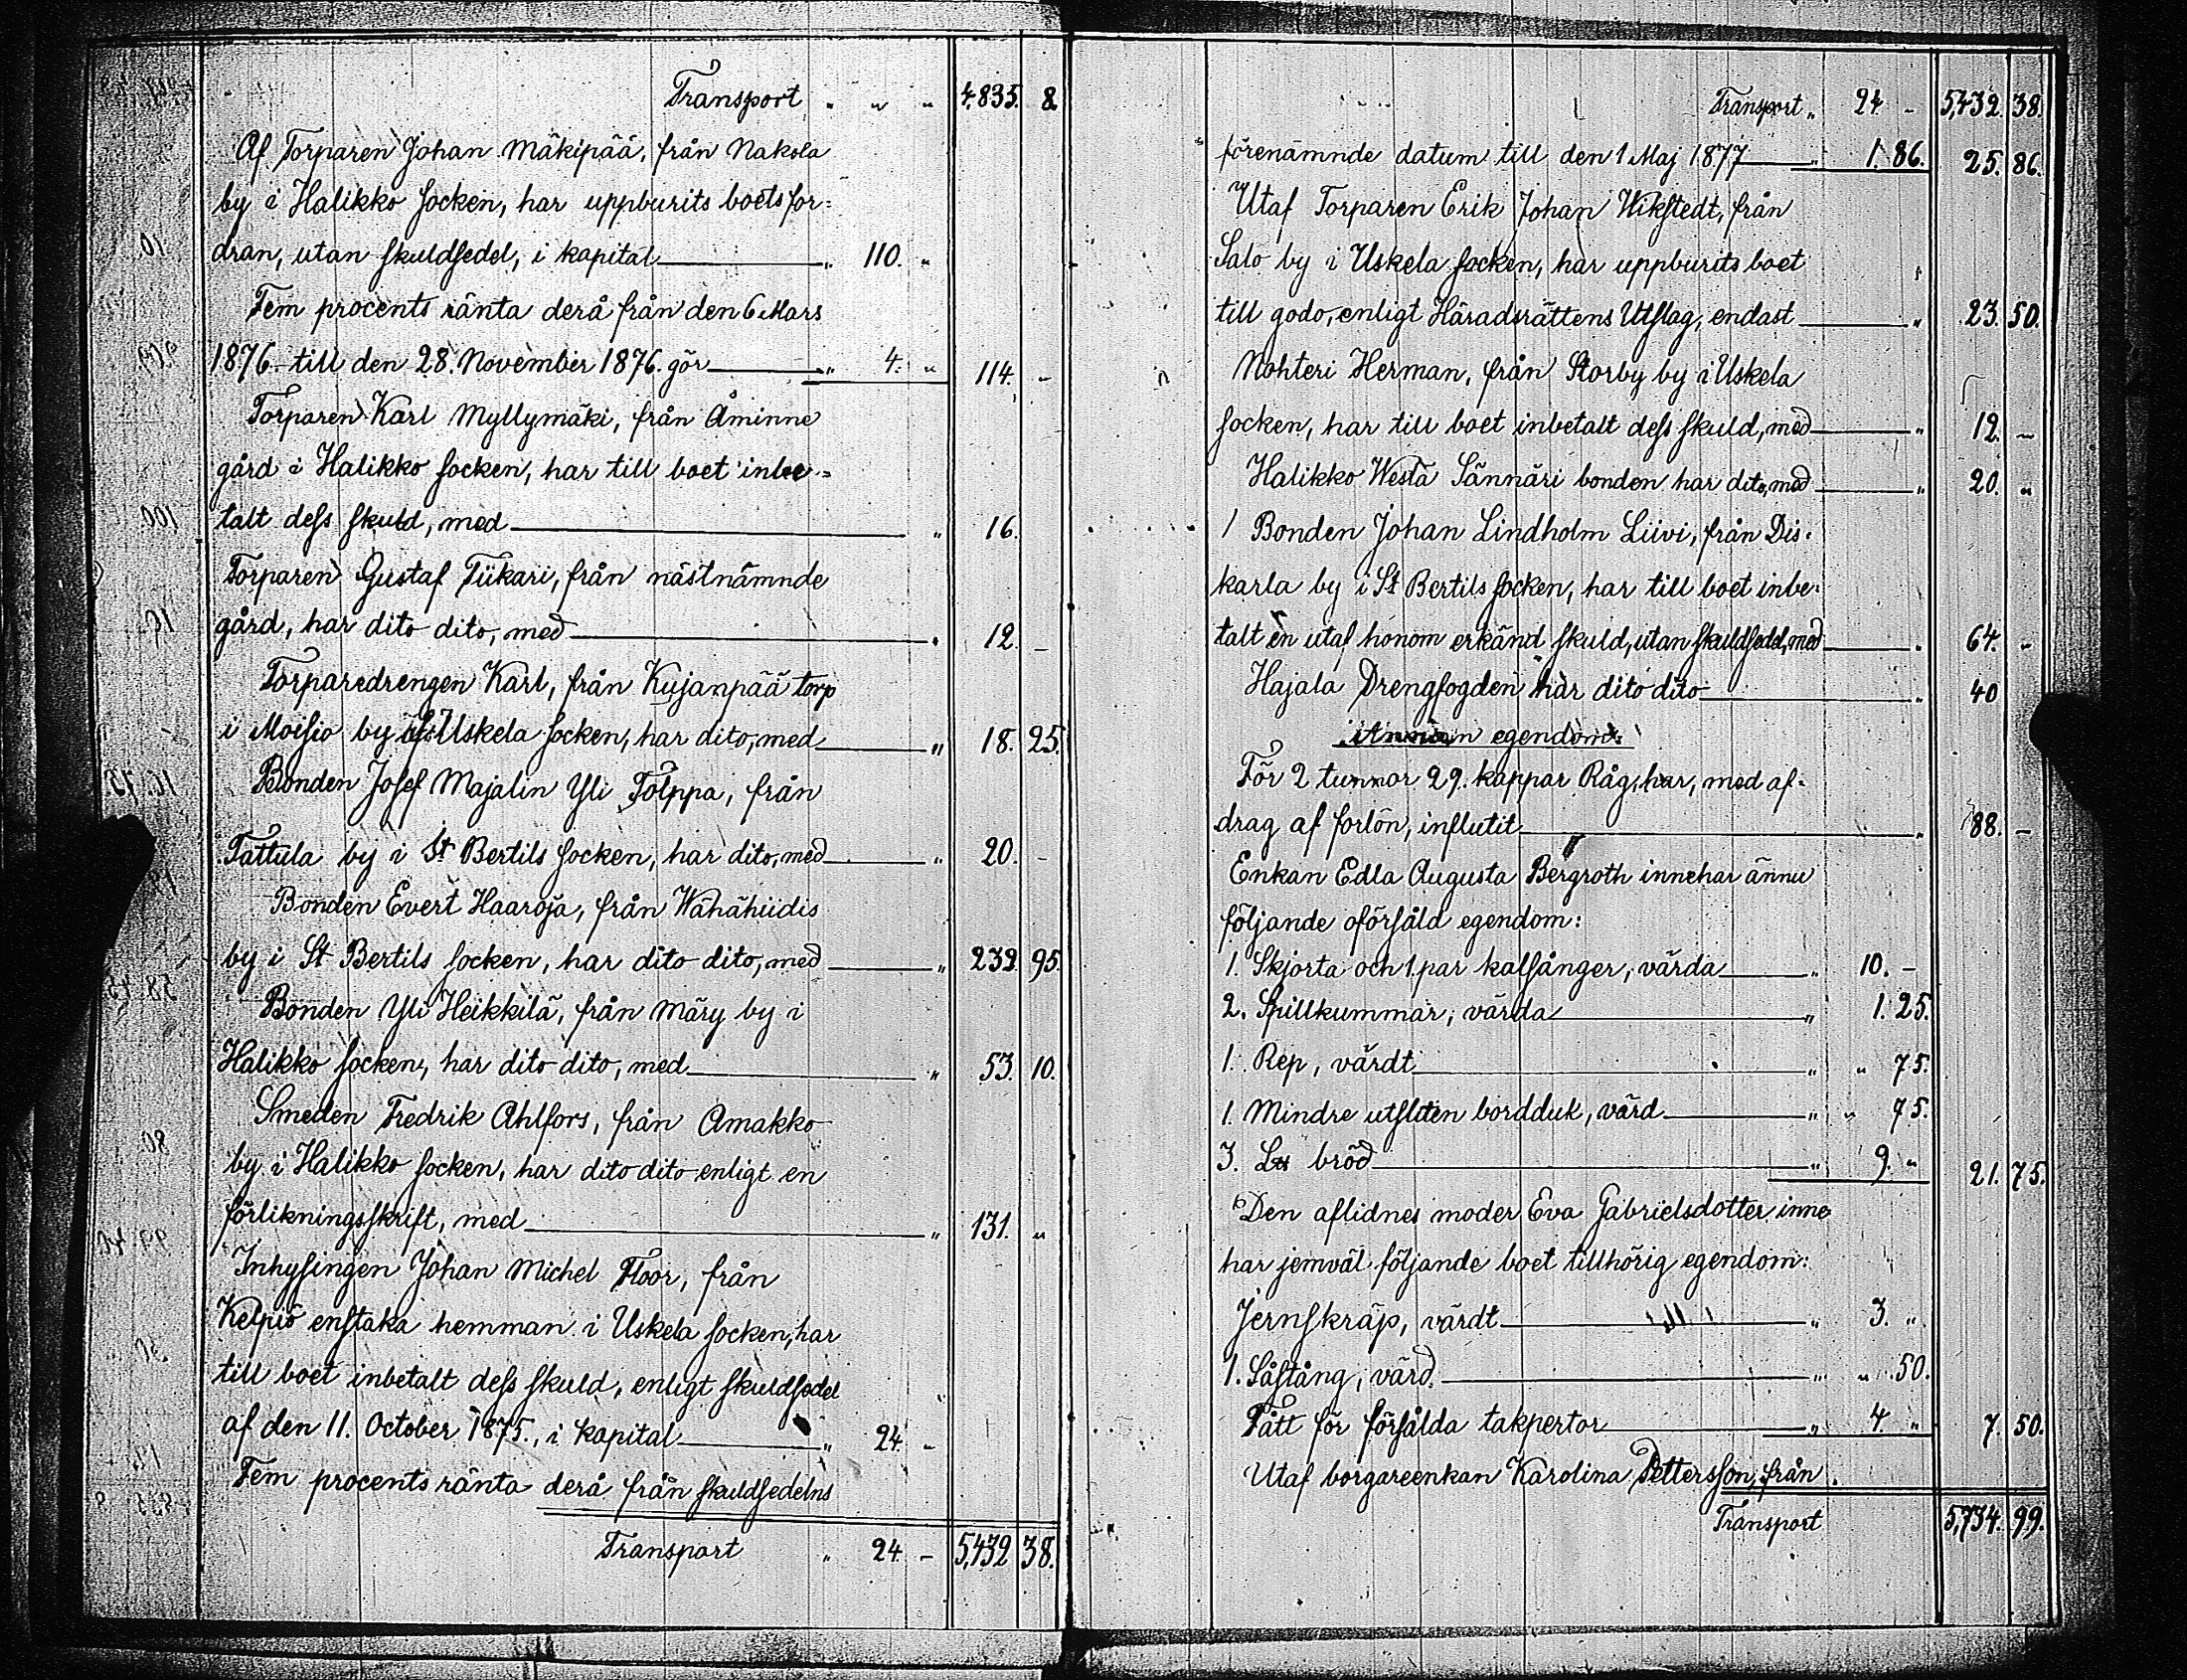 Transport " " " 4,835. 8
Af Torparen Johan Mäkipää, från Nakola
by i Halikko socken, har uppburits boets for=
dran, utan skuldsedel, i kapital " 110. "
Fem procents ränta derå från den 6 Mars
1876. till den 28. November 1876. gör " 4. " 114. "
Torparen Karl Myllymäki, från Åminne
gård i Halikko socken, har till boet inbe=
talt dess skuld, med " 16.
Torparen Gustaf Tiikari, från nästnämnde
gård, har dito dito, med " 12. –
Torparedrengen Karl, från Kujanpää torp
i Moisio by i Uskela socken, har dito, med " 18. 25.
Bonden Josef Majalin Yli Tolppa, från
Tattula by i St Bertils socken, har dito, med " 20. –
Bonden Evert Haaroja, från Wähähiidis
by i St Bertils socken, har dito dito, med " 232. 95.
Bonden Yli Heikkilä, från Märy by i
Halikko socken, har dito dito, med " 53. 10.
Smeden Fredrik Ahlfors, från Amakko
by i Halikko socken, har dito dito enligt en
förlikningsskrift, med " 131. "
Inhysingen Johan Michel Floor, från
Kelpio enstaka hemman i Uskela socken, har
till boet inbetalt dess skuld, enligt skuldsedel
af den 11. October 1875., i kapital " 24. "
Fem procents ränta derå från skuldsedelns
Transport " 24 – 5,432 38.
Transport " 24 – 5,432. 38.
förenämnde datum till den 1 Maj 1877 " 1. 86. 25. 86.
Utaf Torparen Erik Johan Wikstedt, från
Salo by i Uskela socken, har uppburits boet
till godo, enligt Häradsrättens Utslag, endast " 23. 50.
Nohteri Herman, från Storby by i Uskela
socken, har till boet inbetalt dess skuld, med " 12. –
Halikko Westa Sännäri bonden har dito, med " 20. "
Bonden Johan Lindholm Liivi, från Dis=
karla by i St Bertils socken, har till boet inbe=
talt en utaf honom erkänd skuld, utan skuldsedel, med " 64. "
Hajala Drengfogden har dito dito " 40
Annan egendom:
För 2 tunnor 29. kappar Råg, har, med af=
drag af forlön, influtit " 88. –
Enkan Edla Augusta Bergroth innehar ännu
följande oförsåld egendom:
1. Skjorta och 1. par kalsånger, värda " 10. –
2. Spillkummar, värda " 1. 25.
1. Rep, värdt " " 75.
1. Mindre utsliten bordduk, värd " " 75.
3. L℔ bröd " 9. " 21. 75.
Den aflidnes moder Eva Gabrielsdotter inne
har jemväl följande boet tillhörig egendom:
Jernskräp, värdt " 3. "
1. Såstång, värd " " 50.
Fått för försålda takpertor " 4. " 7. 50.
Utaf borgareenkan Karolina Pettersson, från
Transport 5,734. 99.